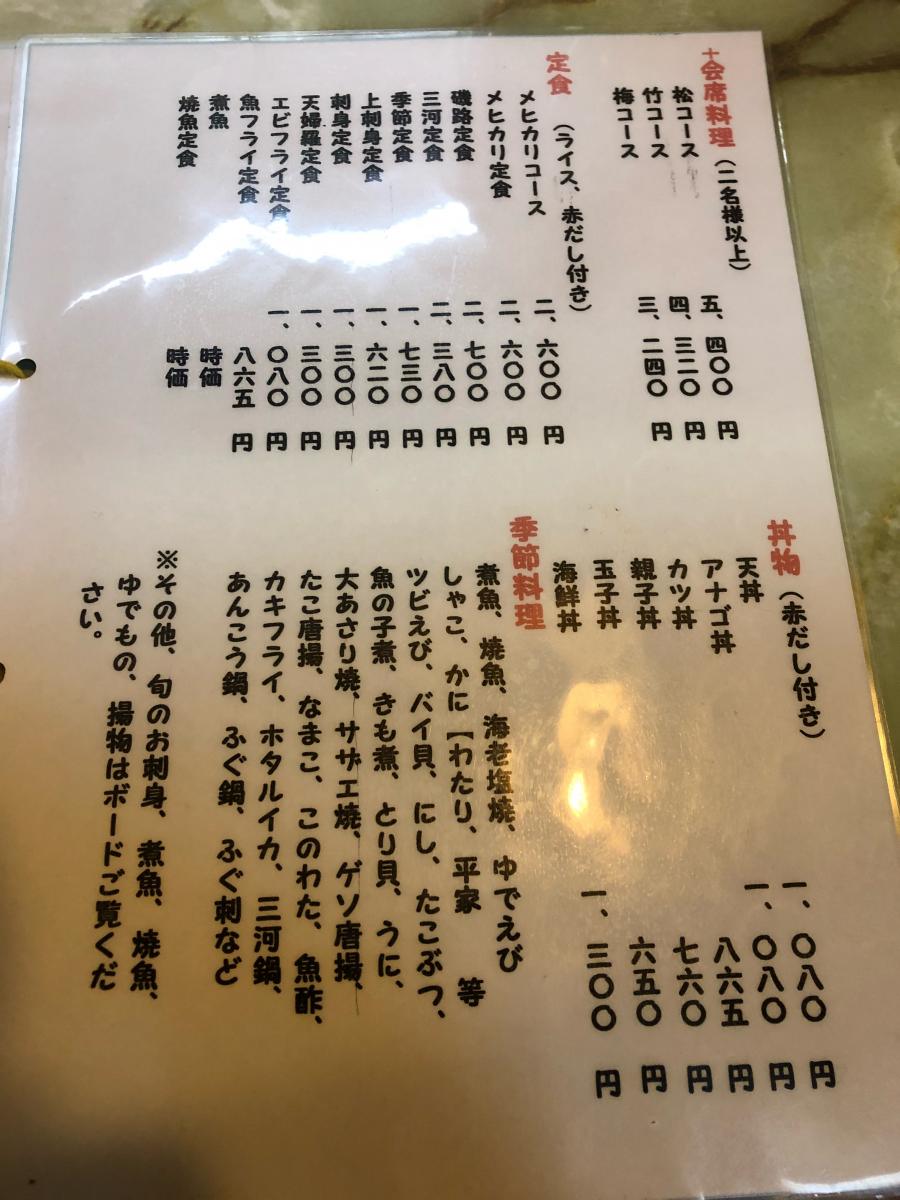 +会席料理（二名様以上）
松コース 五、四〇〇 円
竹コース 四、三二〇 円
梅コース 三、二四〇 円
定食（ライス、赤だし付き）
メヒカリコース 二、六〇〇 円
メヒカリ定食 二、六〇〇 円
磯路定食 二、七〇〇 円
三河定食 二、三八〇 円
季節定食 一、七三〇 円
上刺身定食 一、六二〇 円
刺身定食 一、三〇〇 円
天婦羅定食 一、三〇〇 円
エビフライ定食 一、〇八〇 円
魚フライ定食 八六五 円
煮魚 時価
焼魚定食 時価
丼物（赤だし付き）
天丼 一、〇八〇 円
アナゴ丼 一、〇八〇 円
カツ丼 八六五 円
親子丼 七六〇 円
玉子丼 六五〇 円
海鮮丼 一、三〇〇 円
季節料理
煮魚、焼魚、海老塩焼、ゆでえび
しゃこ、かに【わたり、平家 等
ツビえび、バイ貝、にし、たこぶつ、
魚の子煮、きも煮、とり貝、うに、
大あさり焼、サザエ焼、ゲソ唐揚、
たこ唐揚、なまこ、このわた、魚酢、
カキフライ、ホタルイカ、三河鍋、
あんこう鍋、ふぐ鍋、ふぐ刺など
※その他、旬のお刺身、煮魚、焼魚、
ゆでもの、揚物はボードご覧くだ
さい。